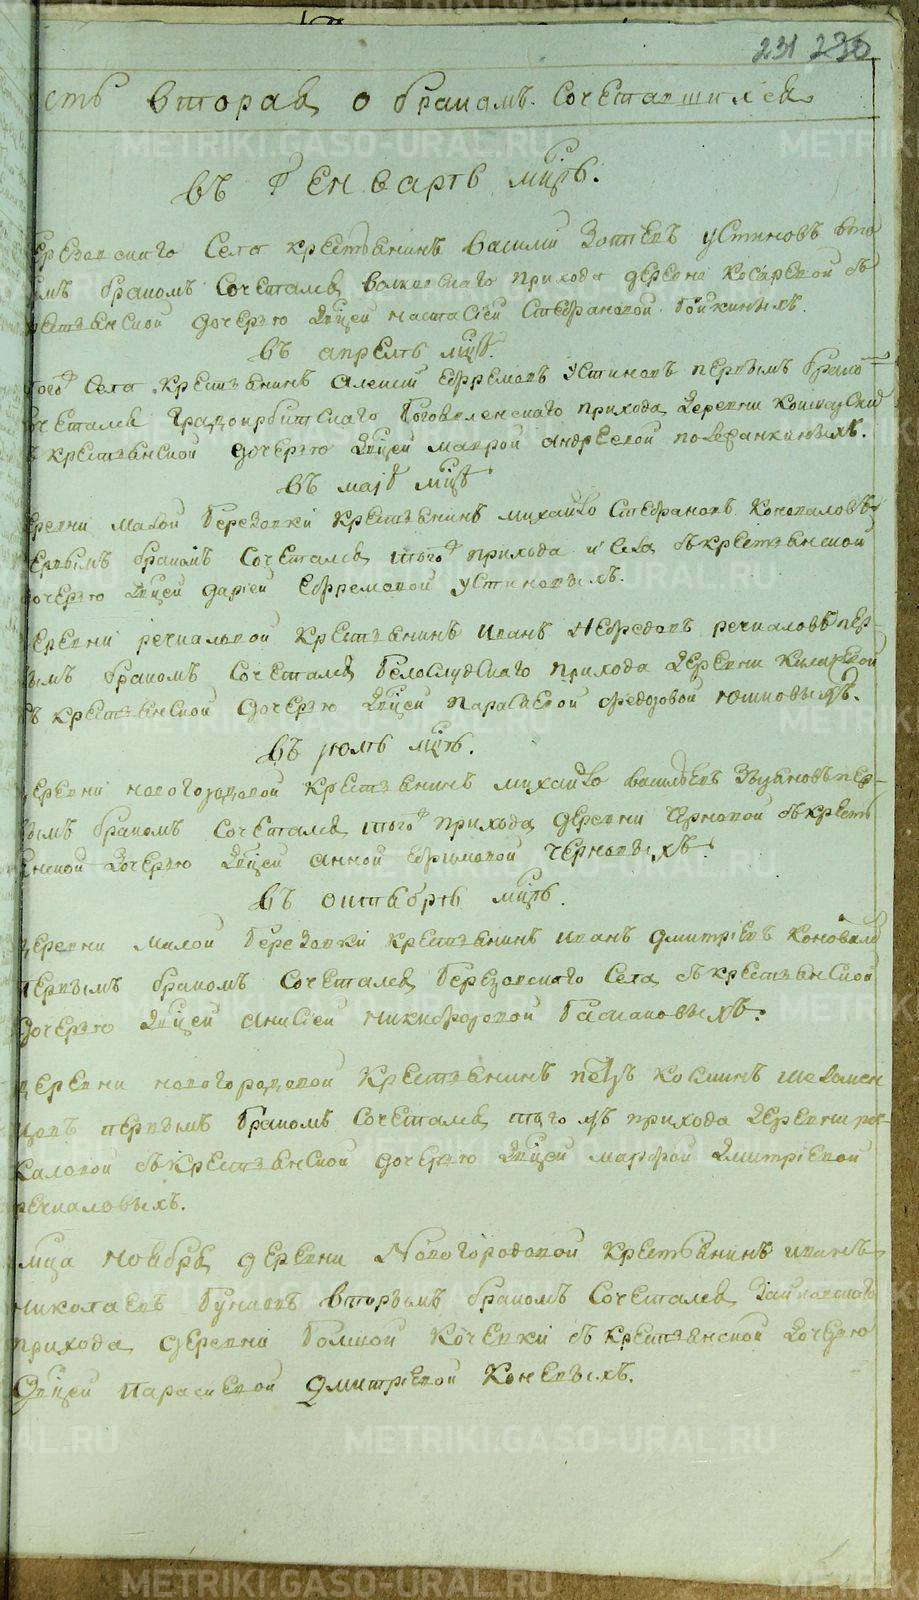 231 230
сть вторая о браком сочетавшихся
въ генваре мцѣ.
ерезовскаго села крестьянинъ василий Зотеевъ устиновъ вто
ымъ бракомъ сочетался волковскаго прихода деревни косаревой съ
рестьянской дочерью дѣвицей настасией стефановой бойкиныхъ.
въ апреле мцѣ.
того села крестьянинъ алексей ефремовъ устиновъ первымъ брако
очетался градоирбитскаго богоявленскаго прихода деревни
крестьянской дочерью дѣвицей маврой андреевой
въ маиѣ мцѣ
еревни малой березовки крестьянинъ михайло стефановъ коноваловъ
ервымъ бракомъ сочетался тогоже прихода и села съ крестьянской
дочерью дѣвицей дарией ефремовой устиновыхъ.
деревни речкаловой крестьянинъ иванъ нефедовъ речкаловъ пер-
вымъ бракомъ сочетался белослудскаго прихода деревни
съ крестьянской дочерью дѣвицей параскевой федоровой юшковыхъ.
въ июле мцѣ.
деревни новогородовой крестьянинъ михайло васильевъ зыряновъ пер-
вымъ бракомъ сочетался тогоже прихода деревни черновой съ кресть
янской дочерью дѣвицей анной ефимовой черновыхъ.
въ октябре мцѣ.
деревни малой березовки крестьянинъ иванъ дмитриевъ коновало
первымъ бракомъ сочетался березовскаго села съ крестьянской
дочерью дѣвицей анисией никифоровой баснановыхъ.
деревни новогородовой крестьянинъ петръ косминъ шеломен
цовъ первымъ бракомъ сочетался тогожъ прихода деревни реч-
каловой съ крестьянской дочерью дѣвицей марфой дмитриевой
речкаловыхъ.
мца ноября деревни Новогородовой крестьянинъ иванъ
николаевъ бунковъ вторымъ бракомъ сочетался зайковскаго
прихода деревни большой кочевки съ крестьянской дочерью
дѣвицей параскевой дмитриевой коневыхъ.
METRIKI.GASO-URAL.RU